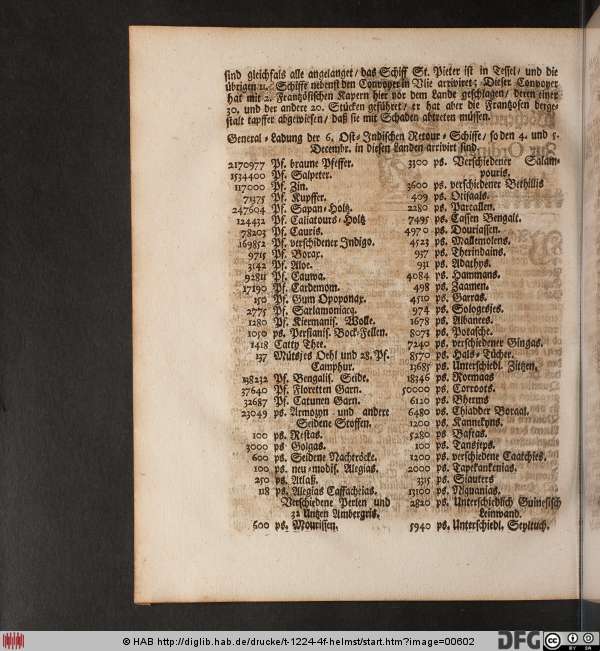 sind gleichfals alle angelanget/ das Schiff St. Pieter ist in Tessel/ und die
übrigen 11. Schiffe nebenst den Convoyer in Vlie arriviret; Dieser Convoyer
hat mit 2. Frantzösischen Kapern hier vor dem Lande geschlagen/ deren einer
30, und der andere 20. Stücken geführet/ er hat aber die Frantzosen derge-
stalt tapffer abgewiesen/ daß sie mit Schaden abtreten müssen.
General-Ladung der 6. Ost-Indischen Retour-Schiffe/ so den 4. und 5.
Decembr. in diesen Landen arrivirt sind
2170977 Pf. braune Pfeffer.
1534400 Pf. Salpeter.
117000 Pf. Zin.
71375 Pf. Kupffer.
247604 Pf. Sapan-Holtz.
124432 Pf. Caliatours-Holtz
78203 Pf. Cauris.
169852 Pf. verschidener Indigo.
9715 Pf. Borax.
3142 Pf. Aloe.
92811 Pf. Cauwa.
17190 Pf. Cardemom.
150 Pf. Gum Opoponax.
2775 Pf. Sarlamoniacq.
1280 Pf. Kiermanis. Wolle.
1050 ps. Persianis. Bock-Fellen.
1418 Catty Thee.
137 Mützjes Oehl und 28. Pf.
Camphur.
198232 Pf. Bengalis. Seide.
37640 Pf. Floretten Garn.
32687 Pf. Catunen Garn.
23049 ps. Armozyn und andere
Seidene Stoffen.
100 ps. Restas.
3000 ps Golgas.
600 ps. Seidene Nachtröcke.
100 ps. neu-modis. Alegias.
250 ps. Atlaß.
118 ps. Alegias Caffachéias.
Verschiedene Perlen und
32 Untzen Ambergris.
500 ps. Mourissen.
3300 ps. Verschiedener Salam-
pouris.
3600 ps. verschiedener Bethillis
409 ps. Otisaals.
2280 ps. Parcallen.
7495 ps. Cassen Bengalt.
4970 ps. Douriassen.
4523 ps. Mallemolens.
937 ps. Therindains.
931 ps. Adathys.
4084 ps. Hammans.
498 ps. Zaanen.
4510 ps. Garras.
974 ps. Sologesjes.
1678 ps. Albanees.
8073 ps. Potasche.
7240 ps. verschiedener Gingas.
8570 ps. Hals-Tücher.
13685 ps. Unterschiedl. Zitzen.
18346 ps. Rormaas
50000 ps. Corroots.
6120 ps. Bherms
6480 ps. Chiadder Boraal.
1200 ps. Kannekyns.
5280 ps Baftas.
100 ps. Tansjeps.
1200 ps. verschiedene Caatchies.
2000 ps. Tapekankenias.
3315 ps. Siauters
13100 ps. Nquanias.
2820 ps. Unterschiedlich Guinesisch
Leinwand.
5940 ps. Unterschiedl. Seyltuch.
© HAB http://diglib.hab.de/drucke/t-1224-4f-helmst/start.htm?image=00602
DFG
CC BY SA